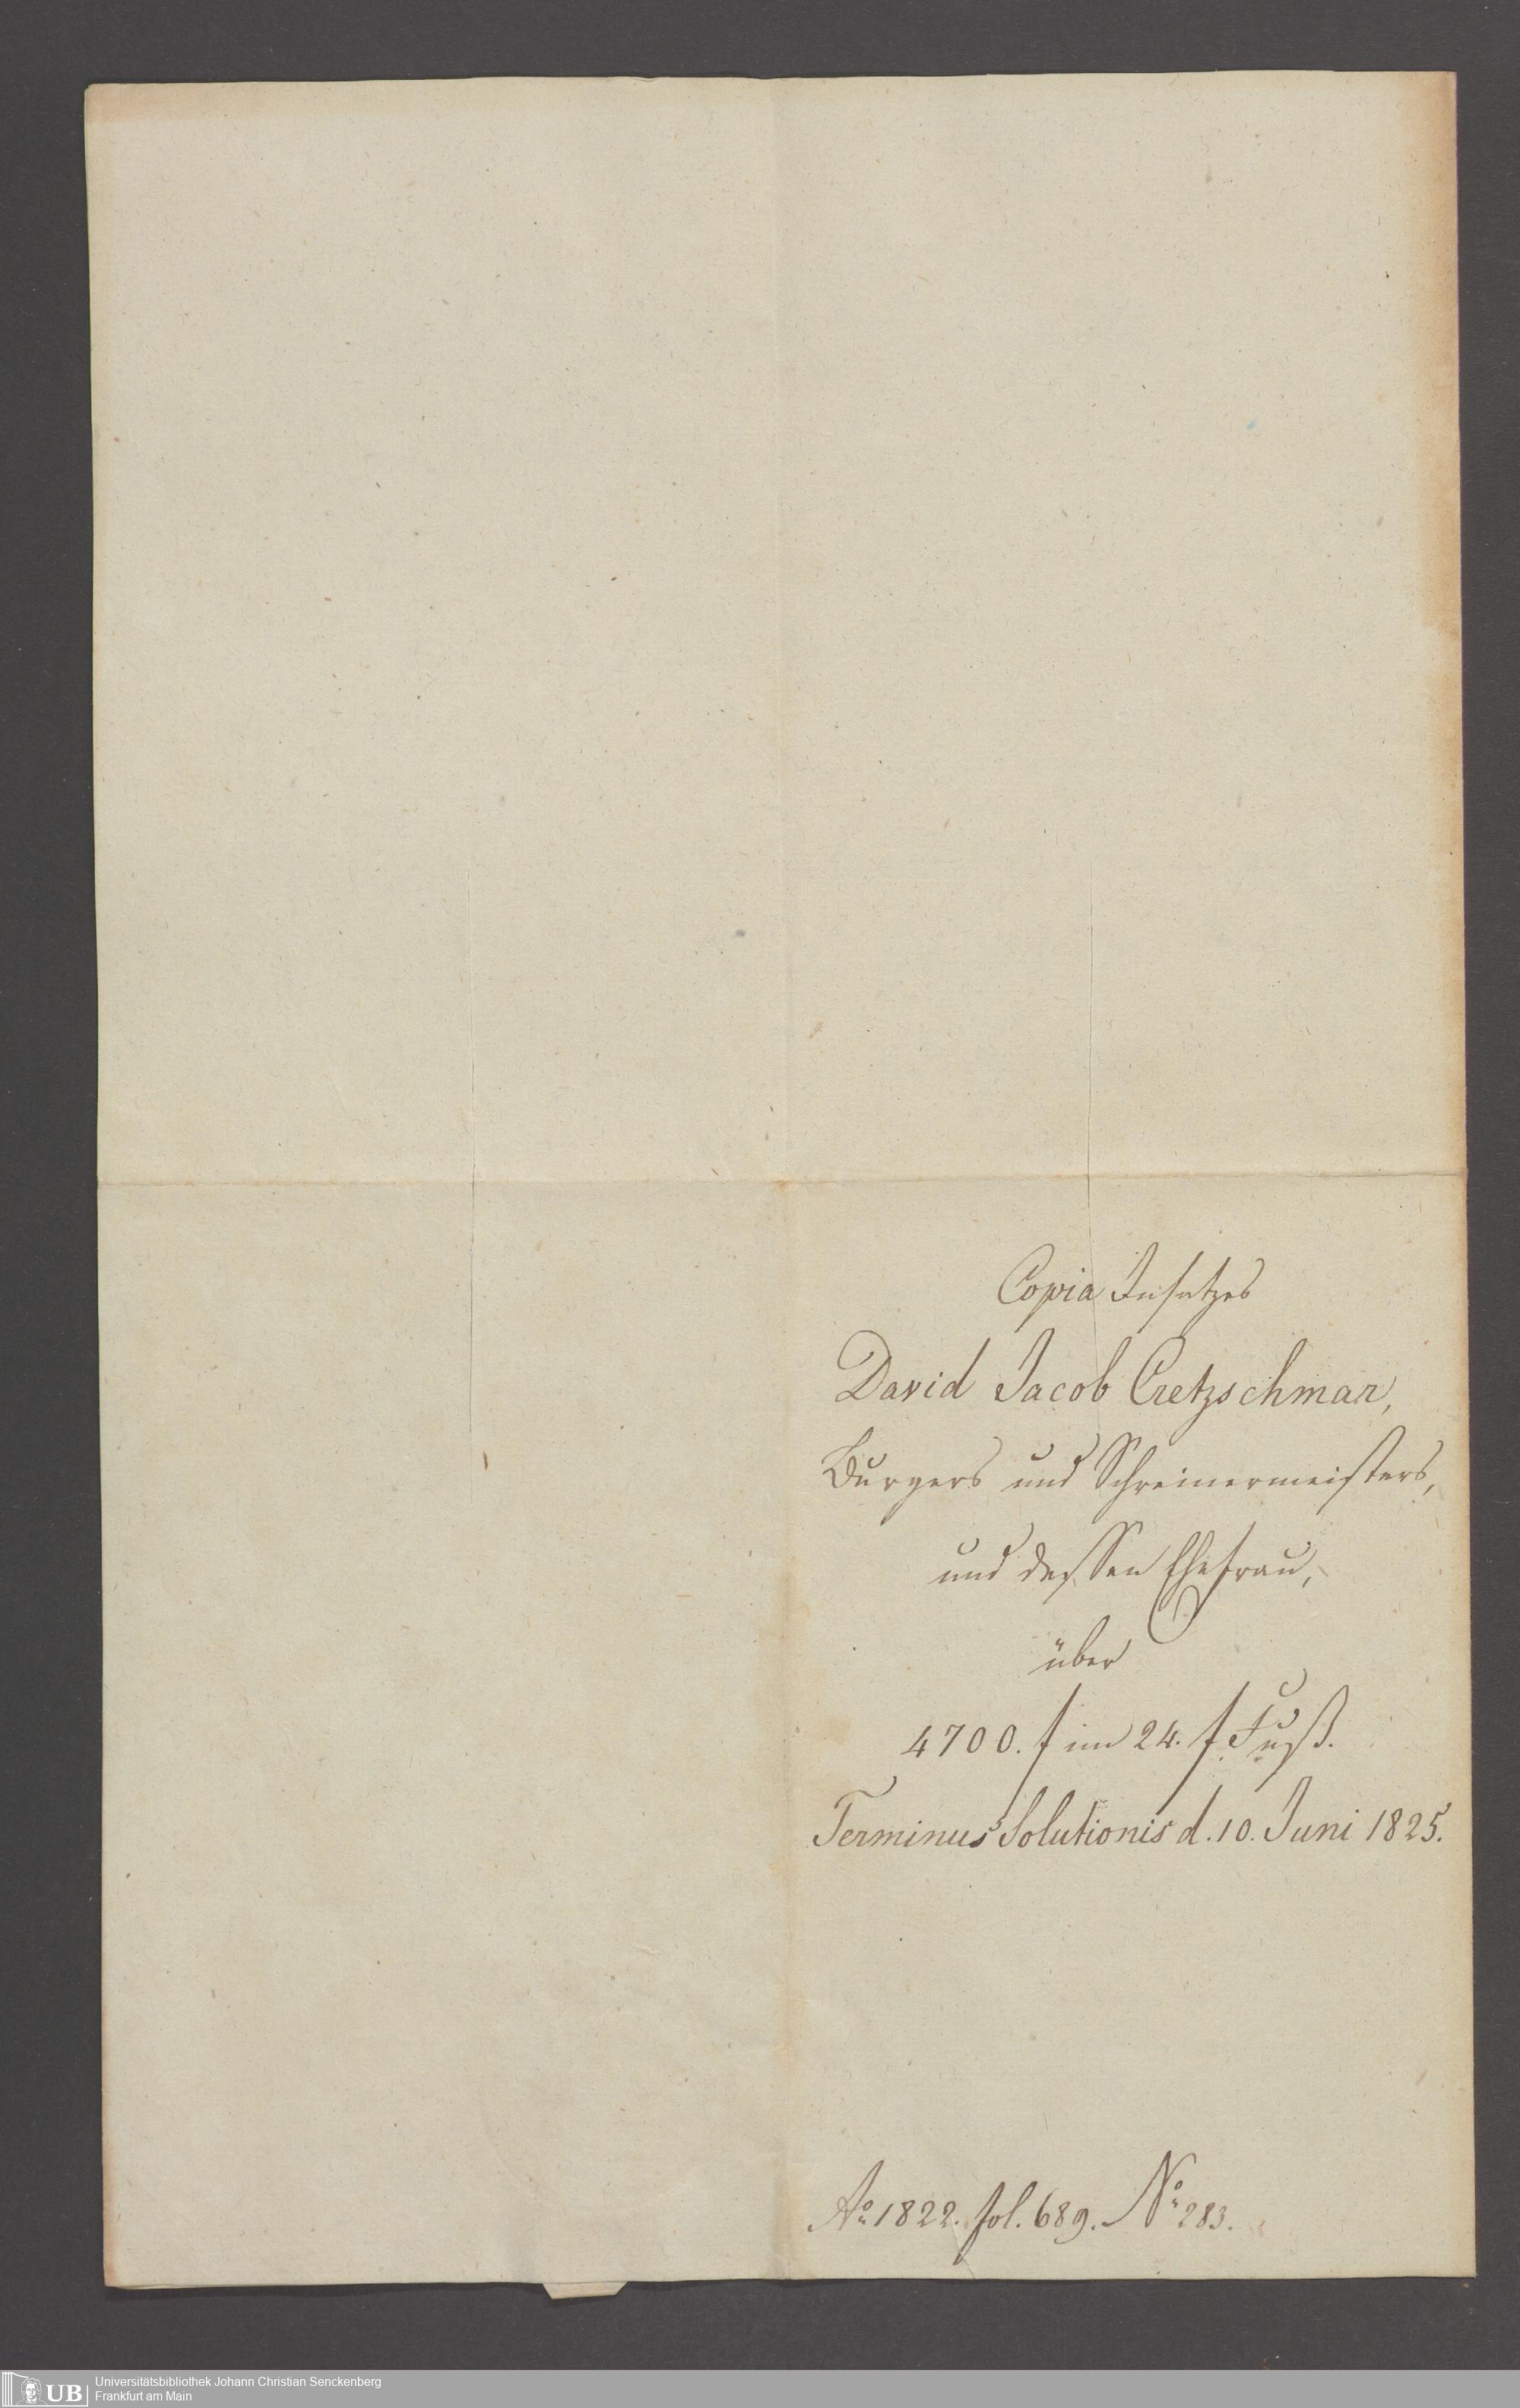 Copia Insatzes
David Jacob Cretzschmar,
Burgers und Schreinermeisters,
und dessen Ehefrau,
über
4700. f im 24. f Fuß.
Terminus Solutionis d. 10. Juni 1825.
Ao 1822. fol. 689. No 283.
UB
Universitätsbibliothek Johann Christian Senckenberg
Frankfurt am Main